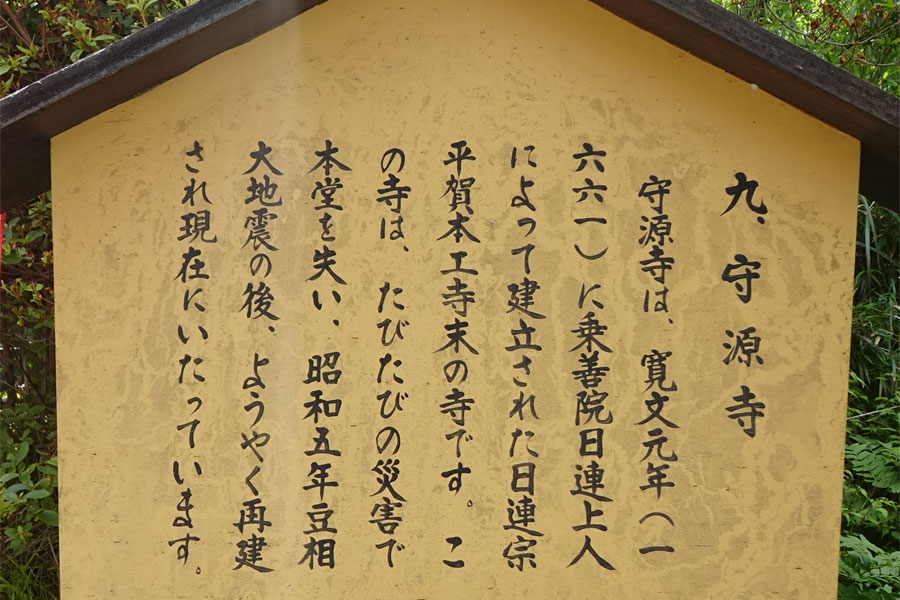 九、守源寺
守源寺は、寛文元年(一
六六一)に乗善院日連上人
によって建立された日連宗
平賀本工寺末の寺です。こ
の寺は、たびたびの災害で
本堂を失い、昭和五年豆相
大地震の後、ようやく再建
され現在にいたっています。